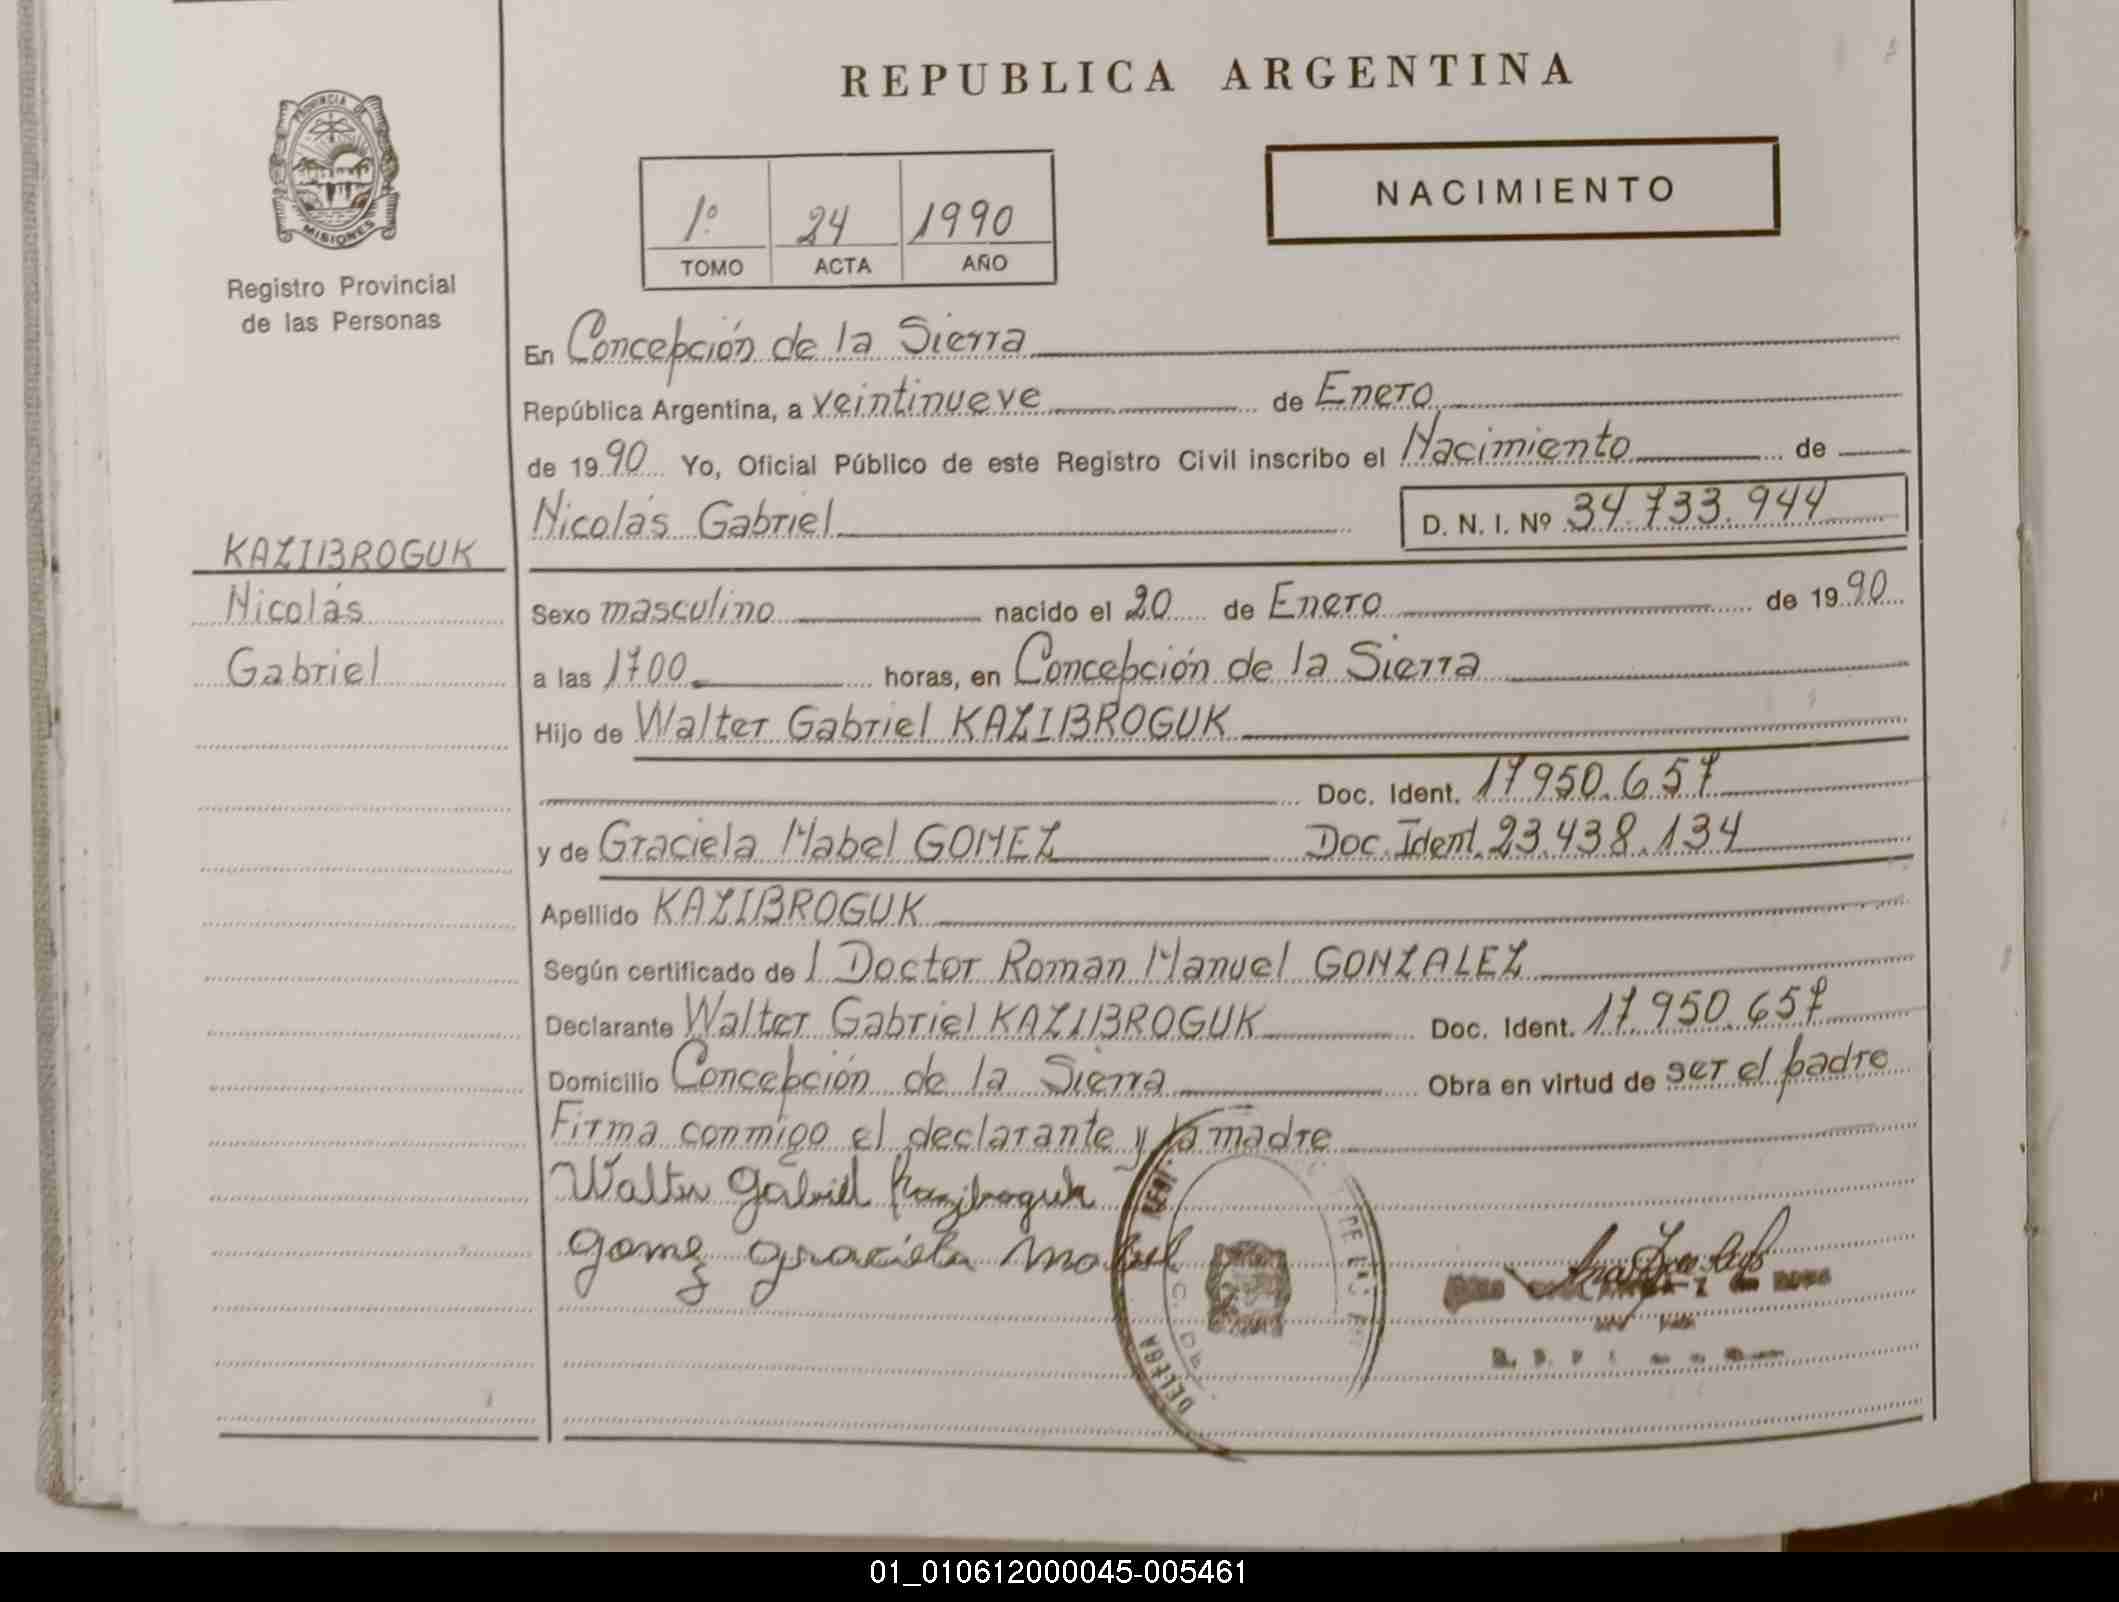 REPUBLICA ARGENTINA
PROVINCIA DE
MISIONES
Registro Provincial
de las Personas
NACIMIENTO
1º 24 1990
TOMO ACTA AÑO
En Concepción de la Sierra
República Argentina, a veintinueve de Enero
de 1990 Yo, Oficial Público de este Registro Civil inscribo el Nacimiento de
Nicolás Gabriel D. N. I. Nº 34.733.944
KAZIBROGUK
Nicolás
Gabriel
Sexo masculino nacido el 20 de Enero de 1990
a las 1700 horas, en Concepción de la Sierra
Hijo de Walter Gabriel KAZIBROGUK
Doc. Ident. 17950.657
y de Graciela Mabel GOMEZ Doc. Ident. 23.438.134
Apellido KAZIBROGUK
Según certificado de l Doctor Roman Manuel GONZALEZ
Declarante Walter Gabriel KAZIBROGUK Doc. Ident. 17.950.657
Domicilio Concepción de la Sierra Obra en virtud de ser el padre
Firma conmigo el declarante y la madre
Walter Gabriel Kazibroguk
Gomez Graciela Mabel
DELEGA
DE LAS
01_010612000045-005461